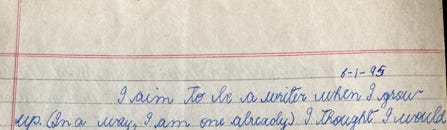 6-1-95
I aim to be a writer when I grow
up. (In a way, I am one already) I thought I would